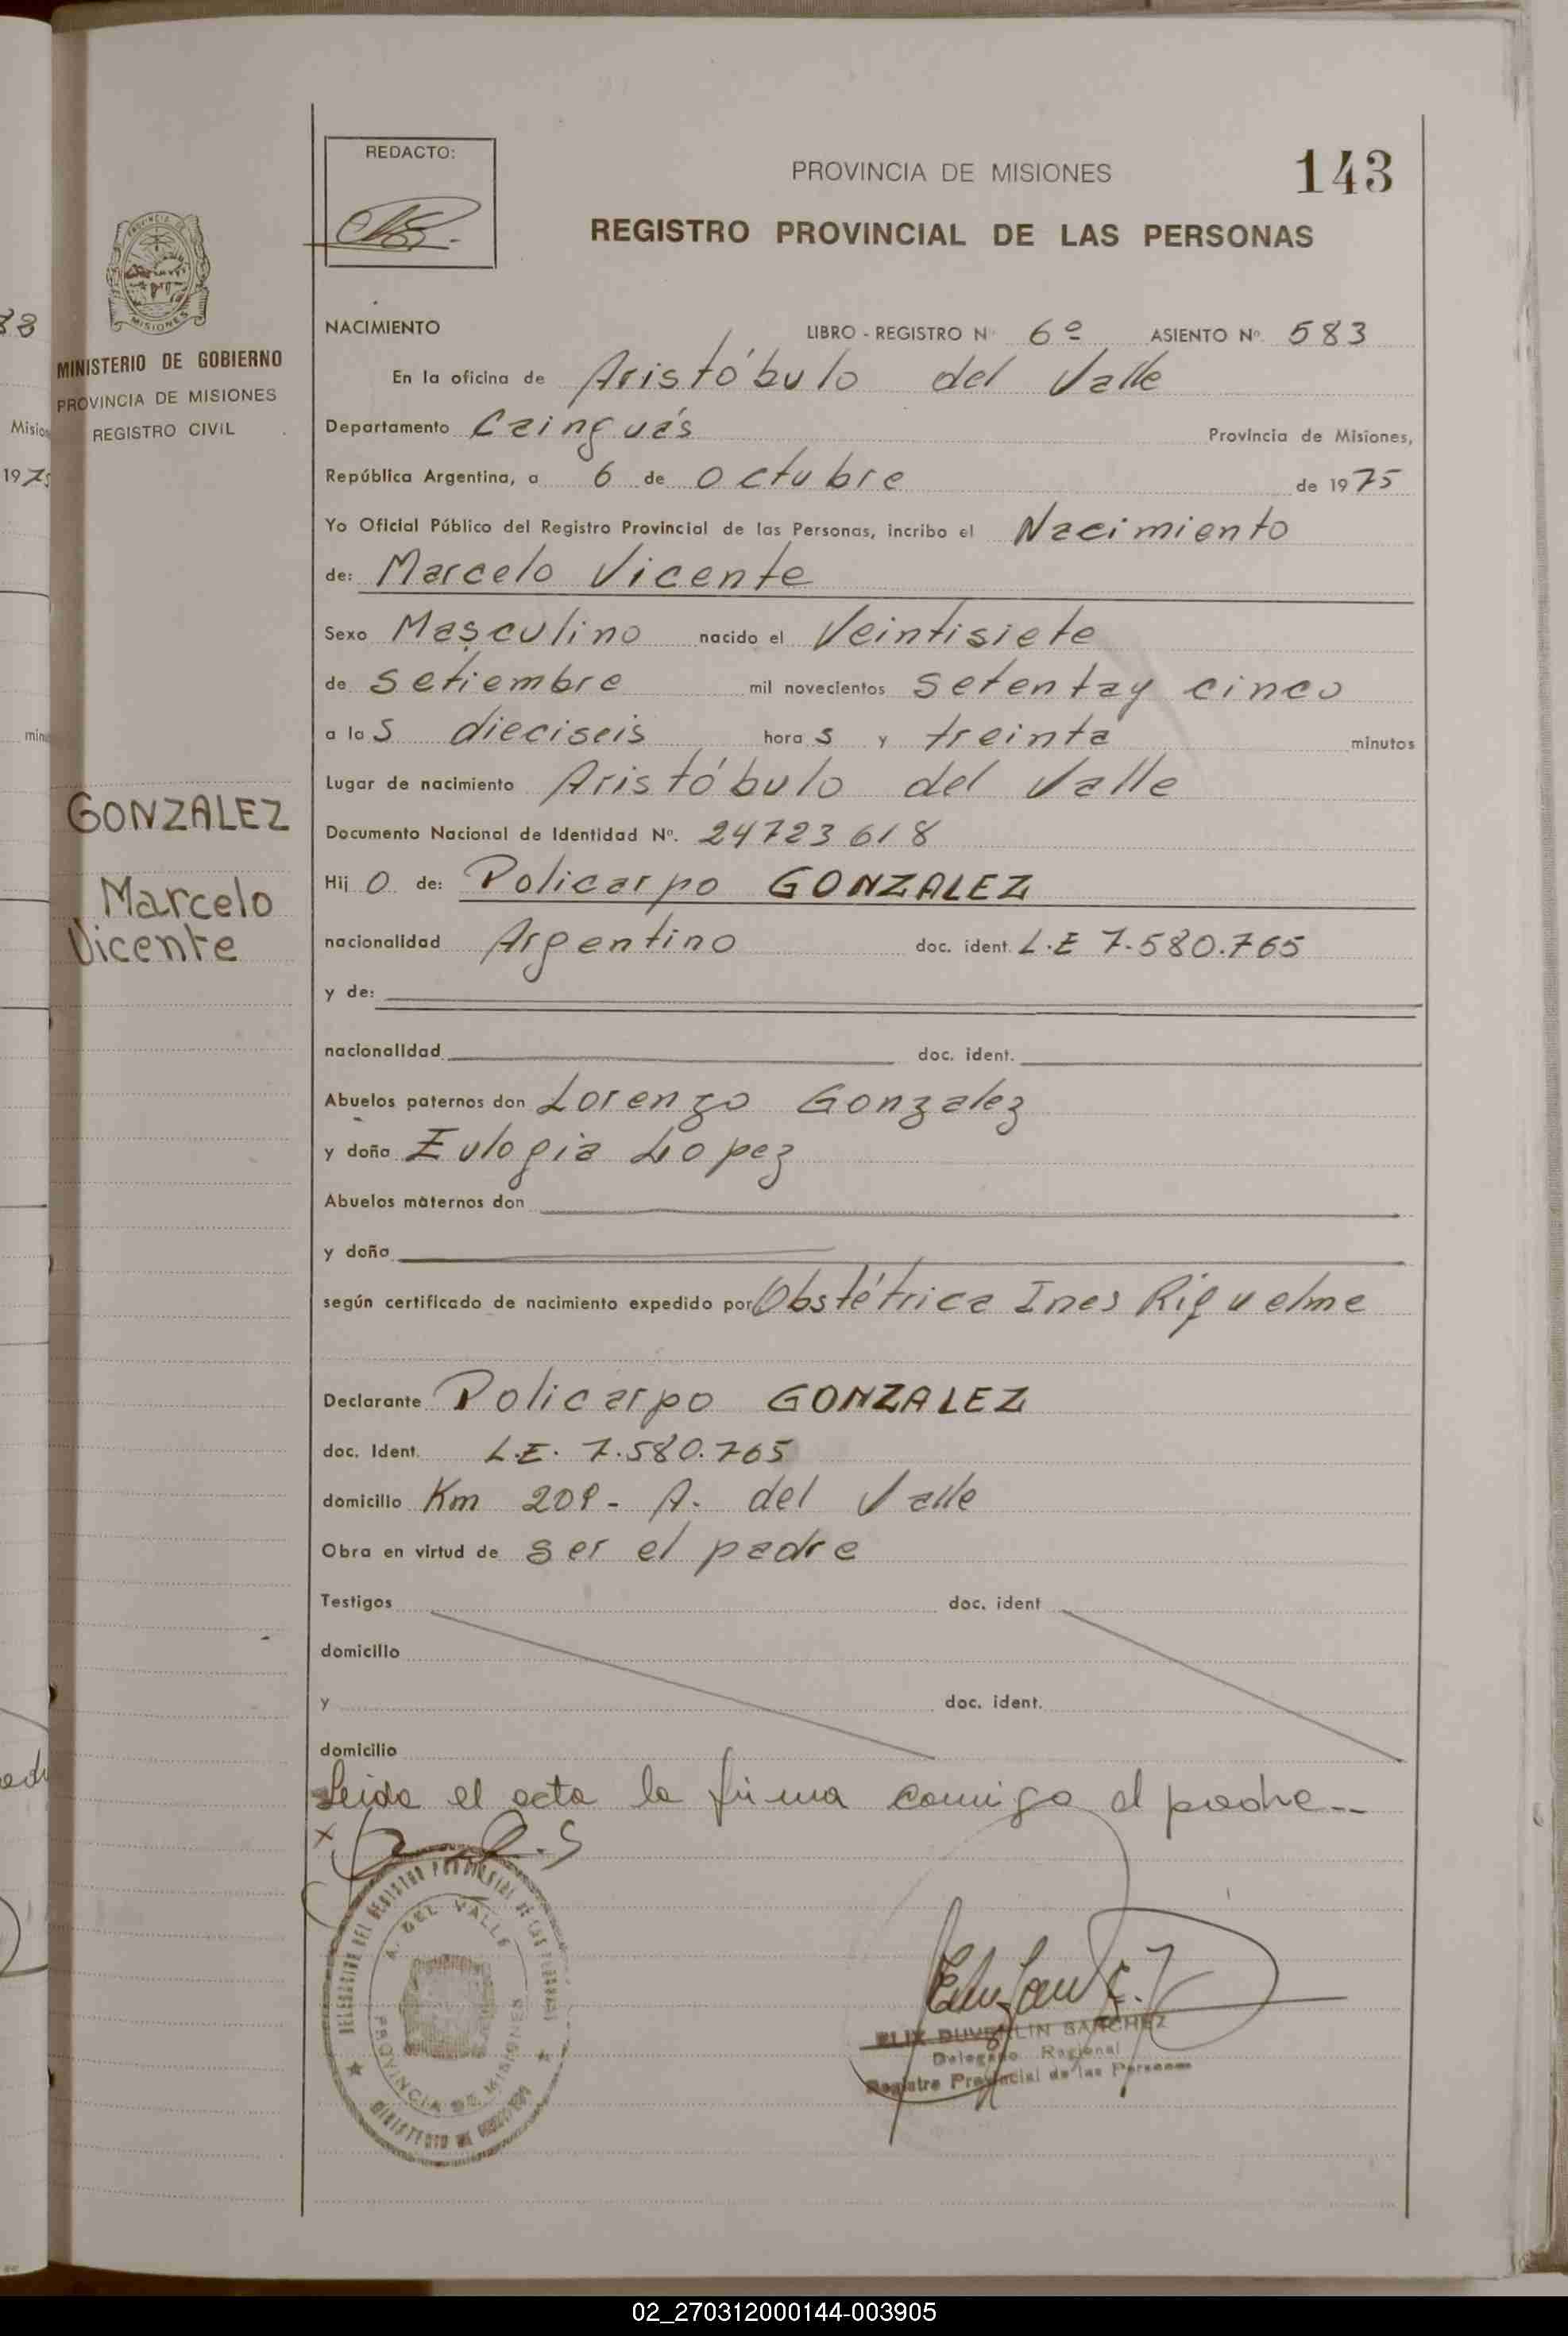 REDACTO:
PROVINCIA DE MISIONES
143
REGISTRO PROVINCIAL DE LAS PERSONAS
PROVINCIA DE
MISIONES
MINISTERIO DE GOBIERNO
PROVINCIA DE MISIONES
REGISTRO CIVIL
NACIMIENTO LIBRO - REGISTRO Nº 6º ASIENTO Nº. 583
En la oficina de Aristóbulo del Valle
Departamento Cainguás Provincia de Misiones,
República Argentina, a 6 de octubre de 1975
Yo Oficial Público del Registro Provincial de las Personas, incribo el Nacimiento
de: Marcelo Vicente
Sexo Masculino nacido el Veintisiete
de setiembre mil novecientos setentay cinco
a las dieciseis horas y treinta minutos
Lugar de nacimiento Aristóbulo del Valle
GONZALEZ
Marcelo
Vicente
Documento Nacional de Identidad Nº. 24723618
Hijo de: Policarpo GONZALEZ
nacionalidad Argentino doc. ident. L.E 7.580.765
y de:
nacionalidad doc. ident.
Abuelos paternos don Lorenzo Gonzalez
y doña Eulogia Lopez
Abuelos maternos don
y doña
según certificado de nacimiento expedido por Obstétrica Ines Riquelme
Declarante Policarpo GONZALEZ
doc. Ident. L.E. 7.580.765
domicilio Km 209- A. del Valle
Obra en virtud de ser el padre
Testigos doc. ident
domicilio
y doc. ident.
domicilio
Leida el acta la firma comigo el padre--
x
DELEGACION DEL REGISTRO PROVINCIAL DE LAS PERSONAS
A. DEL VALLE
PROVINCIA DE MISIONES
SANCHEZ
Delegado Regional
Registro Provincial de las Personas
02_270312000144-003905